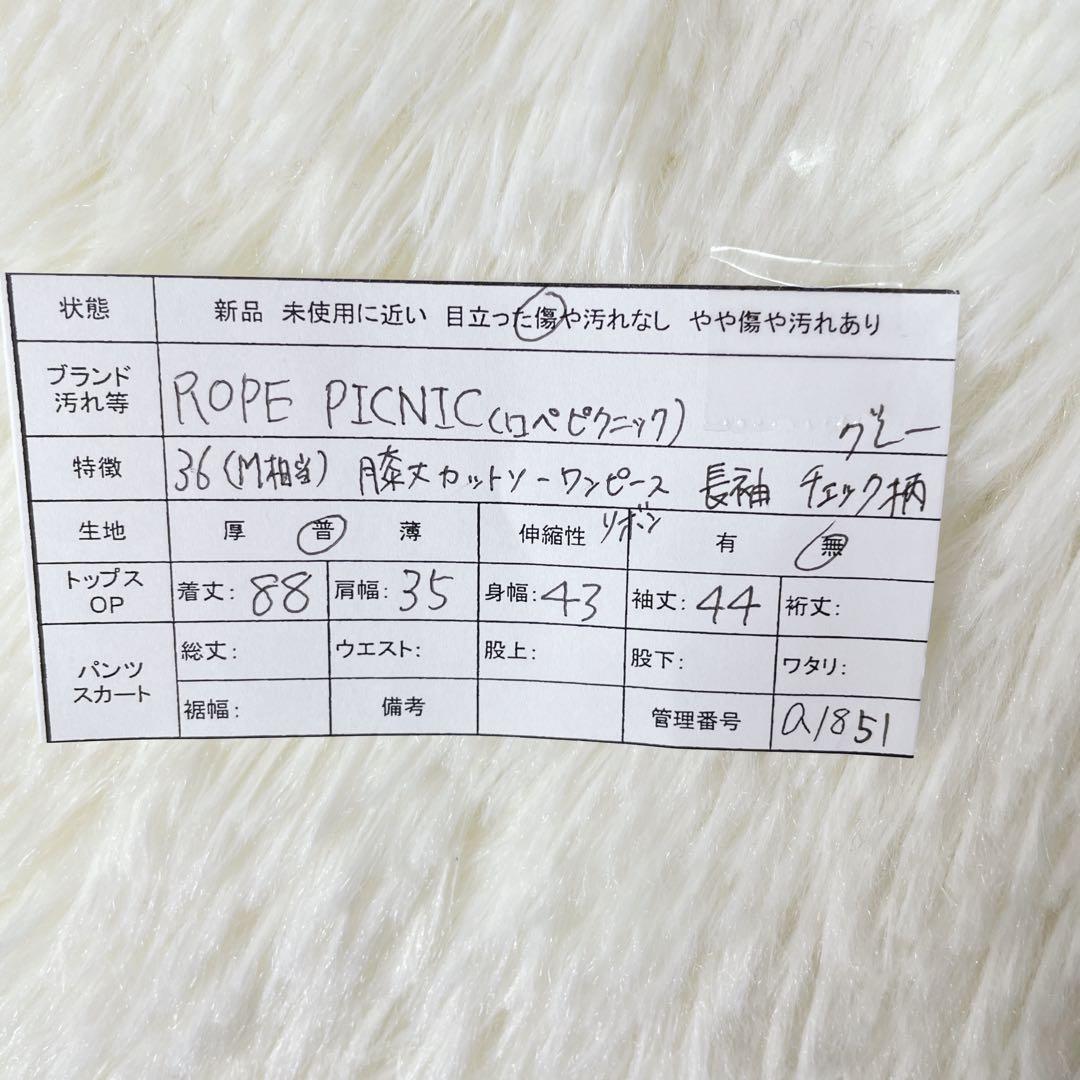 状態 新品 未使用に近い 目立った傷や汚れなし やや傷や汚れあり
ブランド 汚れ等 ROPE PICNIC(ロペピクニック) グレー
特徴 36(M相当) 膝丈カットソーワンピース 長袖 チェック柄
リボン
生地 厚 普 薄 伸縮性 有 無
トップス OP 着丈: 88 肩幅: 35 身幅: 43 袖丈: 44 裄丈:
パンツ スカート 総丈: ウエスト: 股上: 股下: ワタリ:
裾幅: 備考 管理番号 a1851